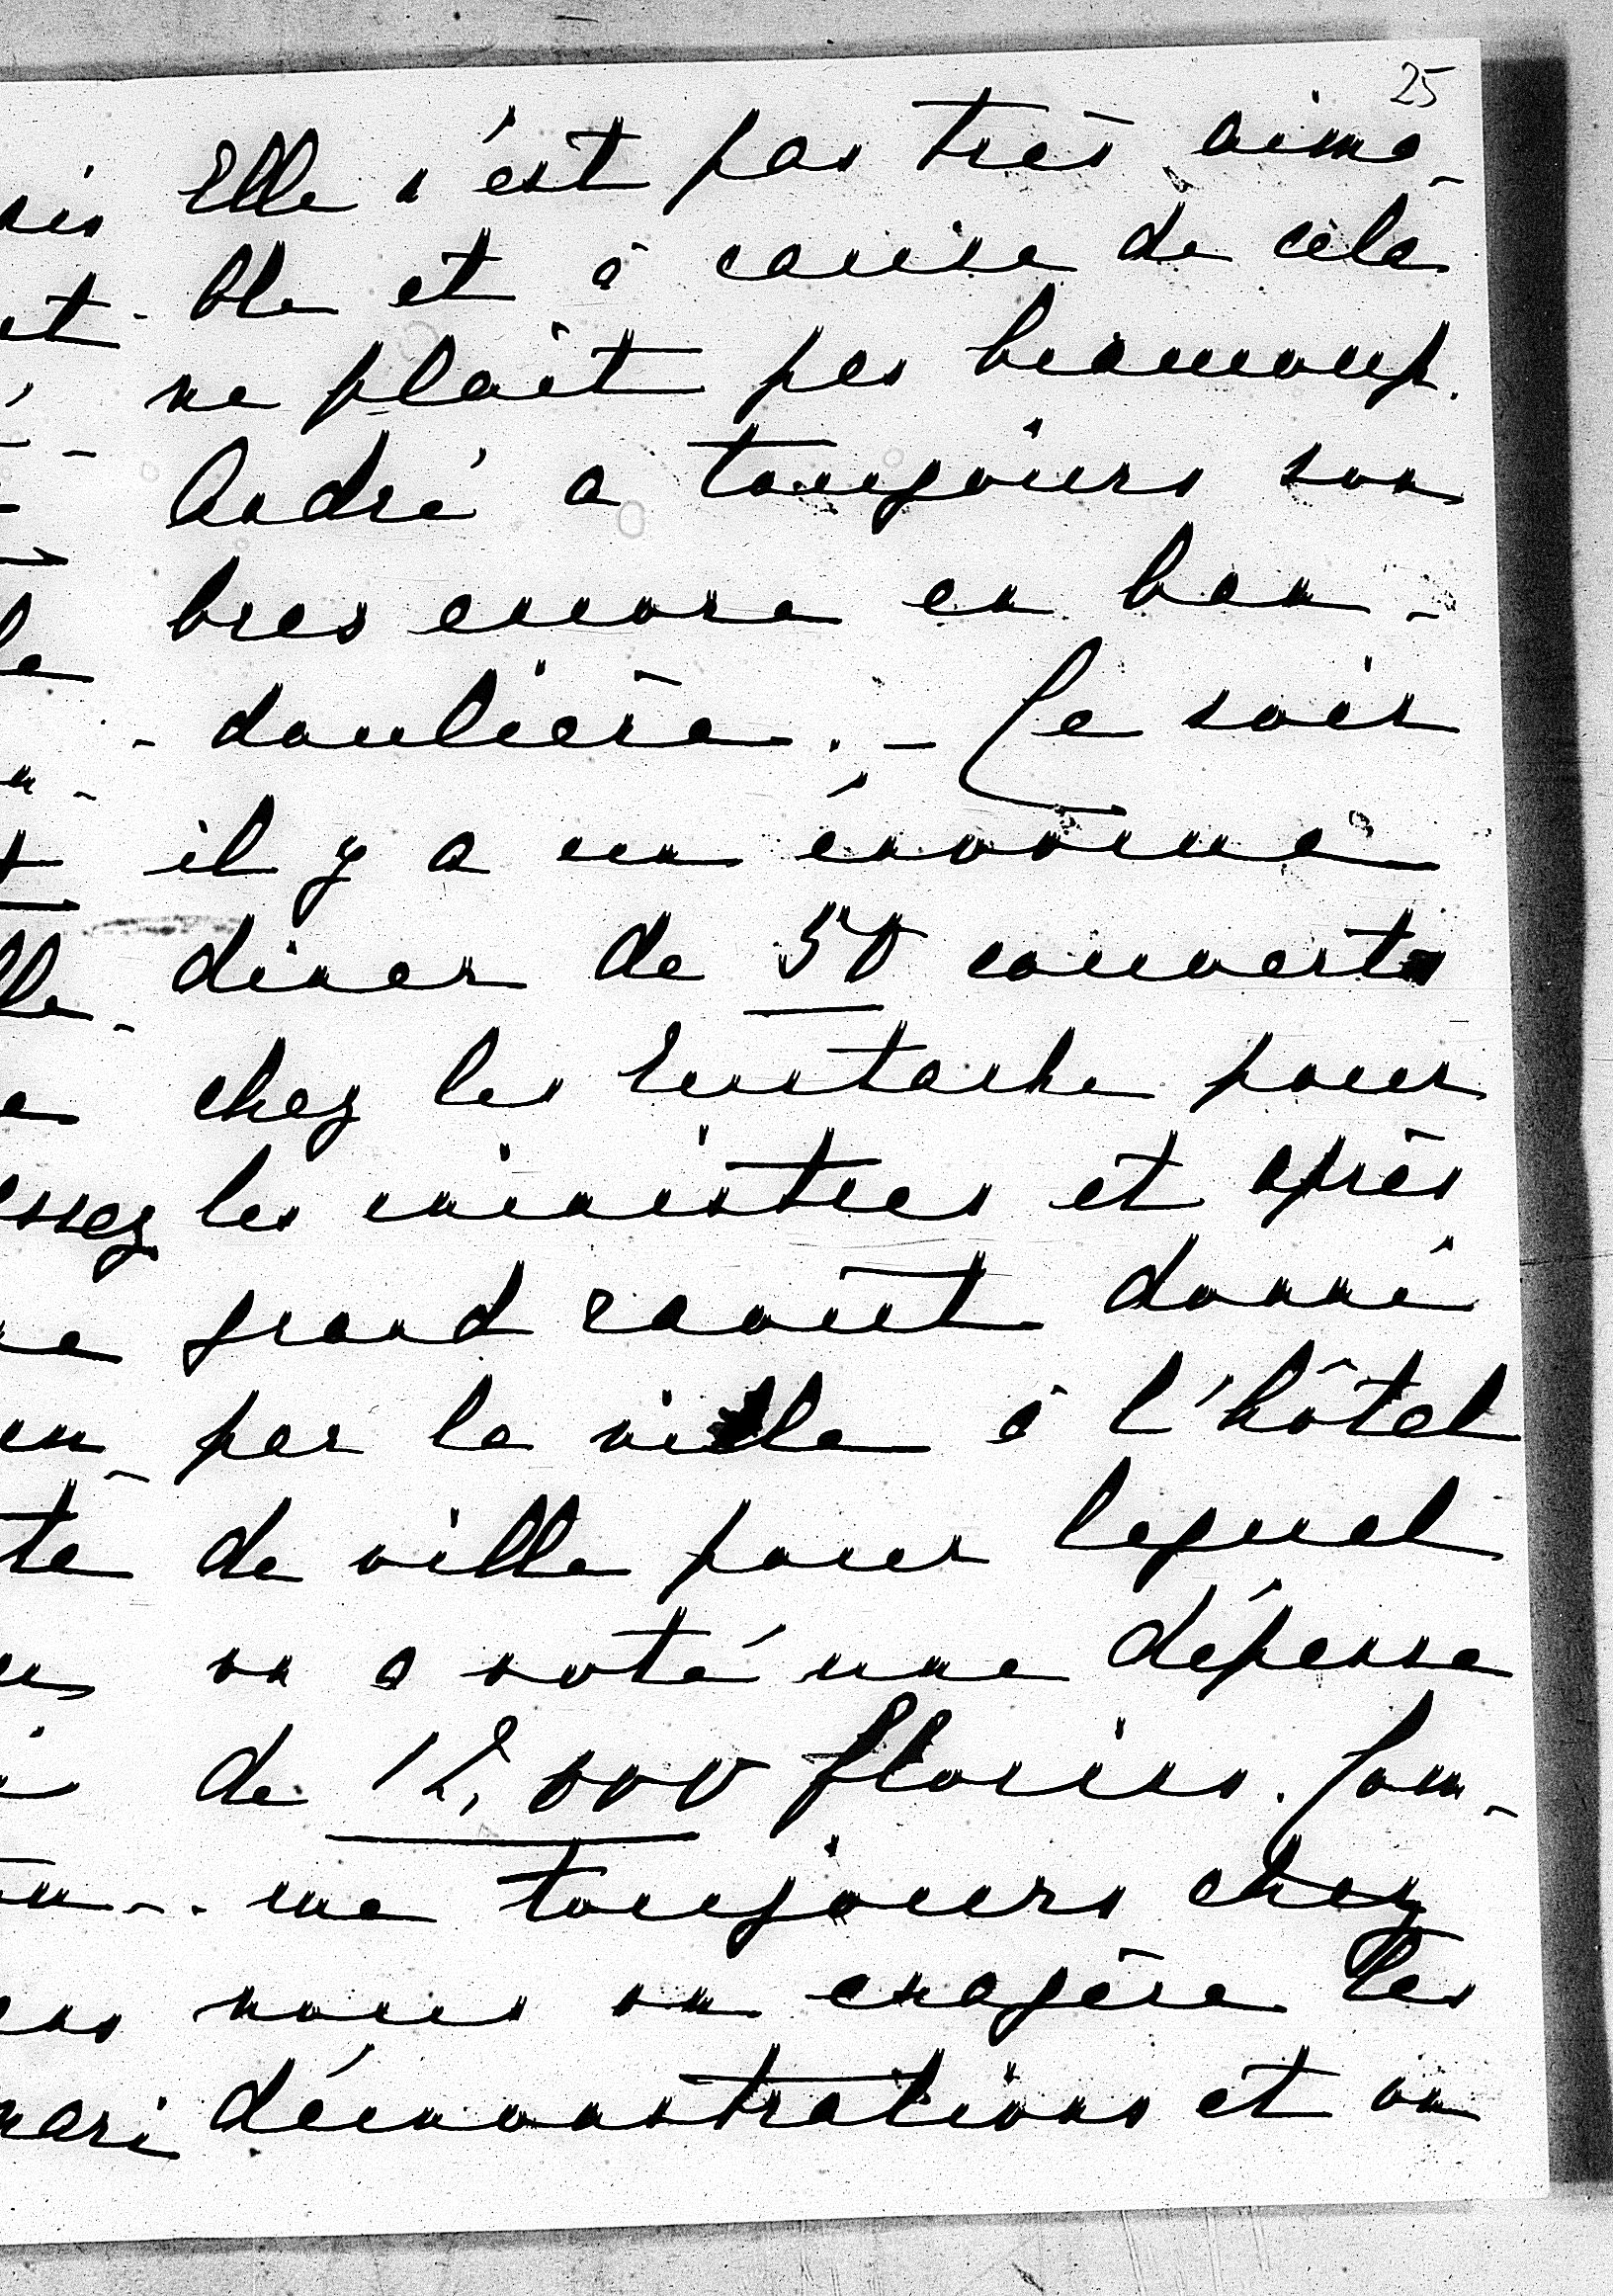 25
Elle n'est pas très aima-
-ble et à cause de cela
ne plaît pas beaucoup.
André a toujours son
bras encore en ban-
-doulière. – Ce soir
il y a un énorme
diner de 50 couverts
chez les Eustache pour
les ministres et après
grand raoût donné
par la ville à l'hôtel
de ville pour lequel
on a voté une dépense
de 12,000 florins. Com-
-me toujours chez
nous on exagère les
démonstrations et on